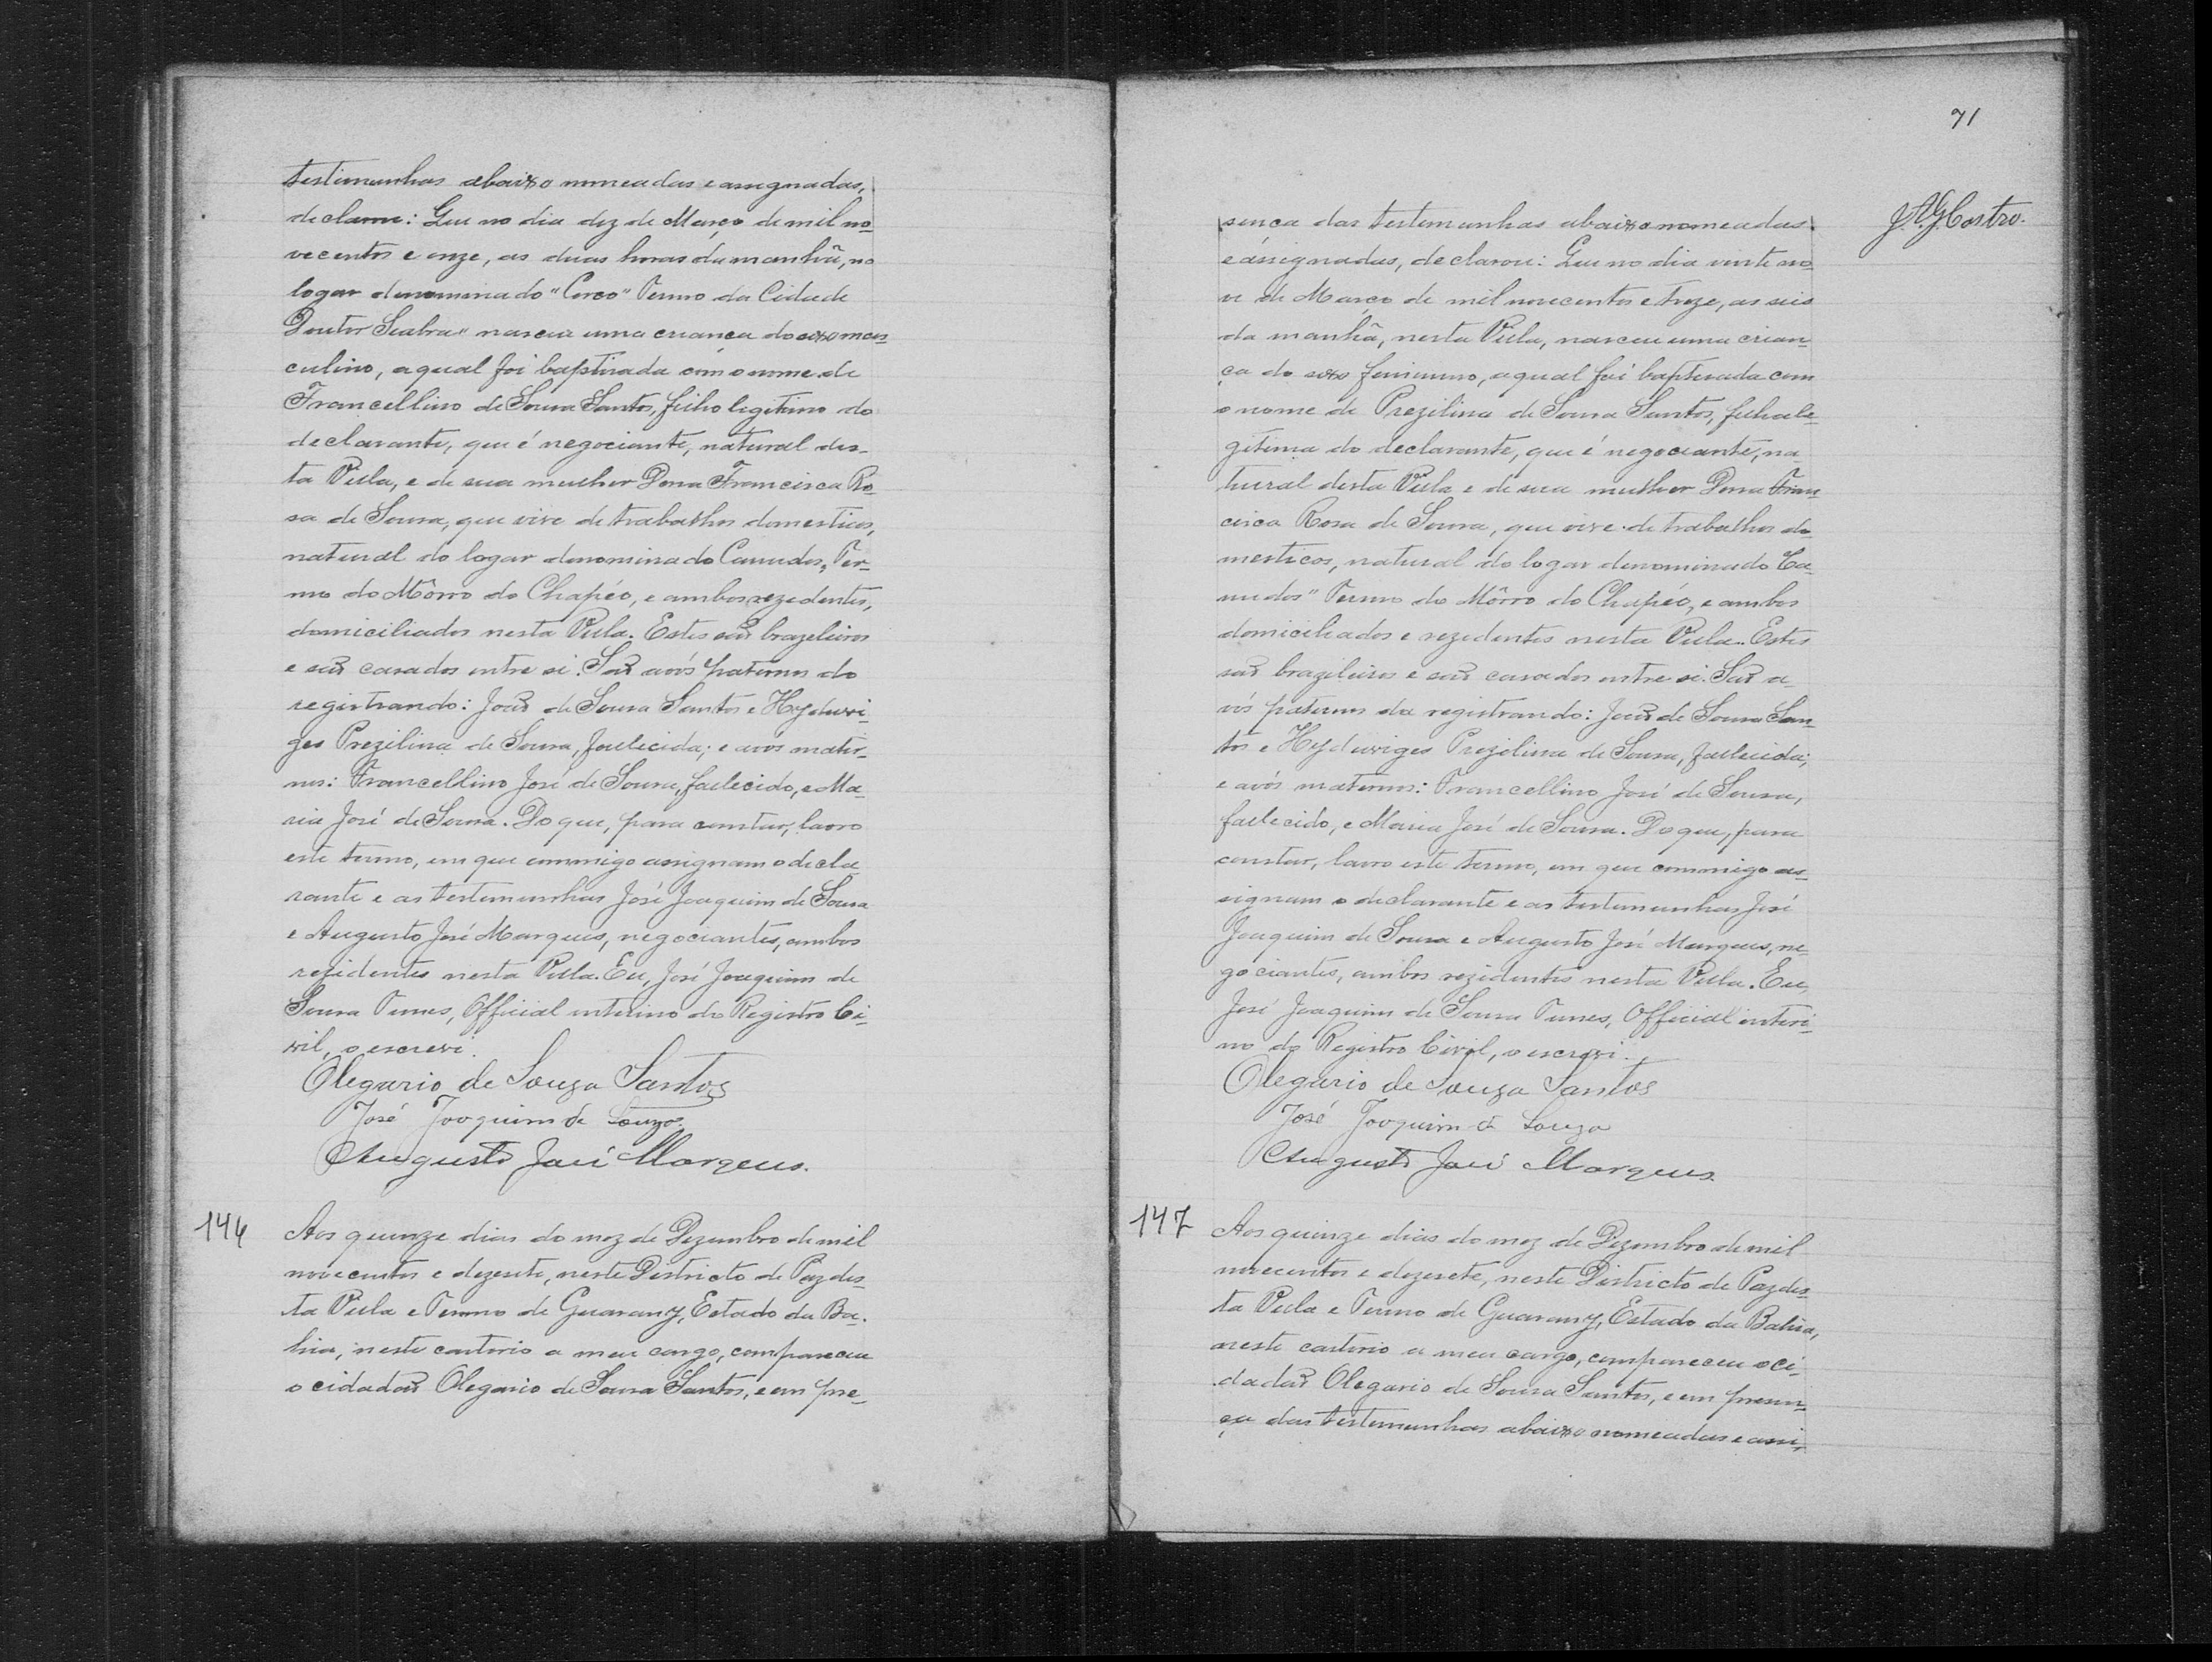 testimunhas abaixo nomeadas e assignadas,
declarou: Que no dia dez de Março de mil no-
vecentos e onze, as duas horas da manhã, no
logar denominado "Cerco" Termo da Cidade
Doutor Seabra" nasceu uma criança do sexo mas-
culino, a qual foi baptisada com o nome de
Francellino de Sousa Santos, filho legitimo do
declarante, que é negociante, natural des-
ta Villa, e de sua mulher Dona Francisca Ro-
sa de Sousa, que vive de trabalhos domesticos,
natural do logar denominado Canudos, Ter-
mo do Môrro do Chapéo, e ambos rezidentes,
domiciliados nesta Villa. Estes são brazileiros
e são casados entre si. São avós paternos do
registrando: João de Sousa Santos e Hyduvi-
ges Prezilina de Sousa, fallecida; e avos mater-
nos: Francellino José de Sousa, fallecido, e Ma-
ria José de Sousa. Do que, para constar, lavro
este termo, em que commigo assignam o decla-
rante e as testemunhas José Joaquim de Sousa
e Augusto José Marques, negociantes, ambos
rezidentes nesta Villa. Eu, José Joaquim de
Sousa Tunes, Official interino do Registro Ci-
vil, o escrevi.
Olegario de Souza Santos
José Joaquim de Souza
Augusto José Marques.
146 Aos quinze dias do mez de Dezembro de mil
novecentos e dezesete, neste Districto de Paz des-
ta Villa e Termo de Guarany, Estado da Ba-
hia, neste cartorio a meu cargo, compareceu
o cidadão Olegario de Sousa Santos, e em pre-
71
J.A.G.Castro.
sença das testemunhas abaixo nomeadas
e assignadas, declarou: Que no dia vinte no-
ve de Março de mil novecentos e treze, as seis
da manhã, nesta Villa, nasceu uma crian-
ça do sexo feminino, a qual foi baptisada com
o nome de Prezilina de Sousa Santos, filha le-
gitima do declarante, que é negociante, na-
tural desta Villa e de sua mulher Dona Fran-
cisca Rosa de Sousa, que vive de trabalhos do-
mesticos, natural do logar denominado Ca-
nudos" Termo do Môrro do Chapéo, e ambos
domiciliados e rezidentes nesta Villa. Estes
são brazileiros e são casados entre si. São a-
vós paternos da registrando: João de Sousa San-
tos e Hyduviges Prezilina de Sousa, fallecida;
e avós maternos: Francellino José de Sousa,
fallecido, e Maria José de Sousa. Do que, para
constar, lavro este termo, em que commigo as-
signam o declarante e as testemunhas José
Joaquim de Sousa e Augusto José Marques, ne-
gociantes, ambos rezidentes nesta Villa. Eu,
José Joaquim de Sousa Tunes, Official interi-
no do Registro Civil, o escrevi.
Olegario de Souza Santos
José Joaquim de Souza
Augusto José Marques.
147 Aos quinze dias do mez de Dezembro de mil
novecentos e dezesete, neste Districto de Paz des-
ta Villa e Termo de Guarany, Estado da Bahia,
neste cartorio a meu cargo, compareceu o ci-
dadão Olegario de Sousa Santos, e em presen-
ça das testemunhas abaixo nomeadas e assi-